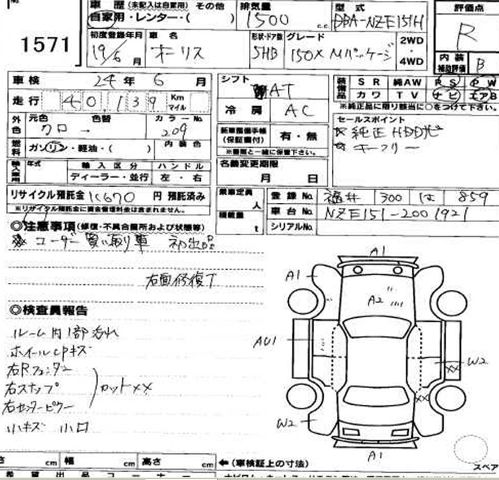 1571
車歴 (未記入は自家用) その他
自家用・レンタ・( )
排気量
1500 c.c.
型式
DBA-NZE151H
評価点
R
初度登録年月
19/6 月
車名
オーリス
形状ドア数
5HB
グレード
150X Mパッケージ
2WD
4WD
内装
補助評価
B
車検 24年 6月
シフト
AT
装備品
SR 純AW PS PW
カワ TV ナビ エアB
※純正品に限り該当に○をつけて下さい
走行 40139 Km マイル
冷房
AC
セールスポイント
純正HDDナビ
キーフリー
外色
元色 色替
クロ
カラーNo.
209
新車整備手帳
(保証書付)
有・無
※書類と一緒に後送り
燃料
ガソリン・軽油・( )
内装色
輸入車用
年式
輸入区分
ディーラー・並行
ハンドル
左・右
名義変更期限
月 日
リサイクル預託金 1K670 円 預託済み
※リサイクル預託金に資金管理料金は含まれません。
乗車定員
人
積載量
t
登録No. 福井 300 は 859
車台No. NZE151-2001921
シリアルNo.
◎注意事項(修復・不具合箇所および状態等)
ユーザー買い取り車 初出品
右面修復了
◎検査員報告
ルーム内1部汚れ
ホイールCPキズ
右Rフェンダー
右ステップ
右センターピラー
カットXX
小キズ 小凹
A1
A1
A1
A2
AU1
W2
XX
XX
W2
A1
スペア
長さ cm 幅 cm 高さ cm ←(車検証上の寸法)